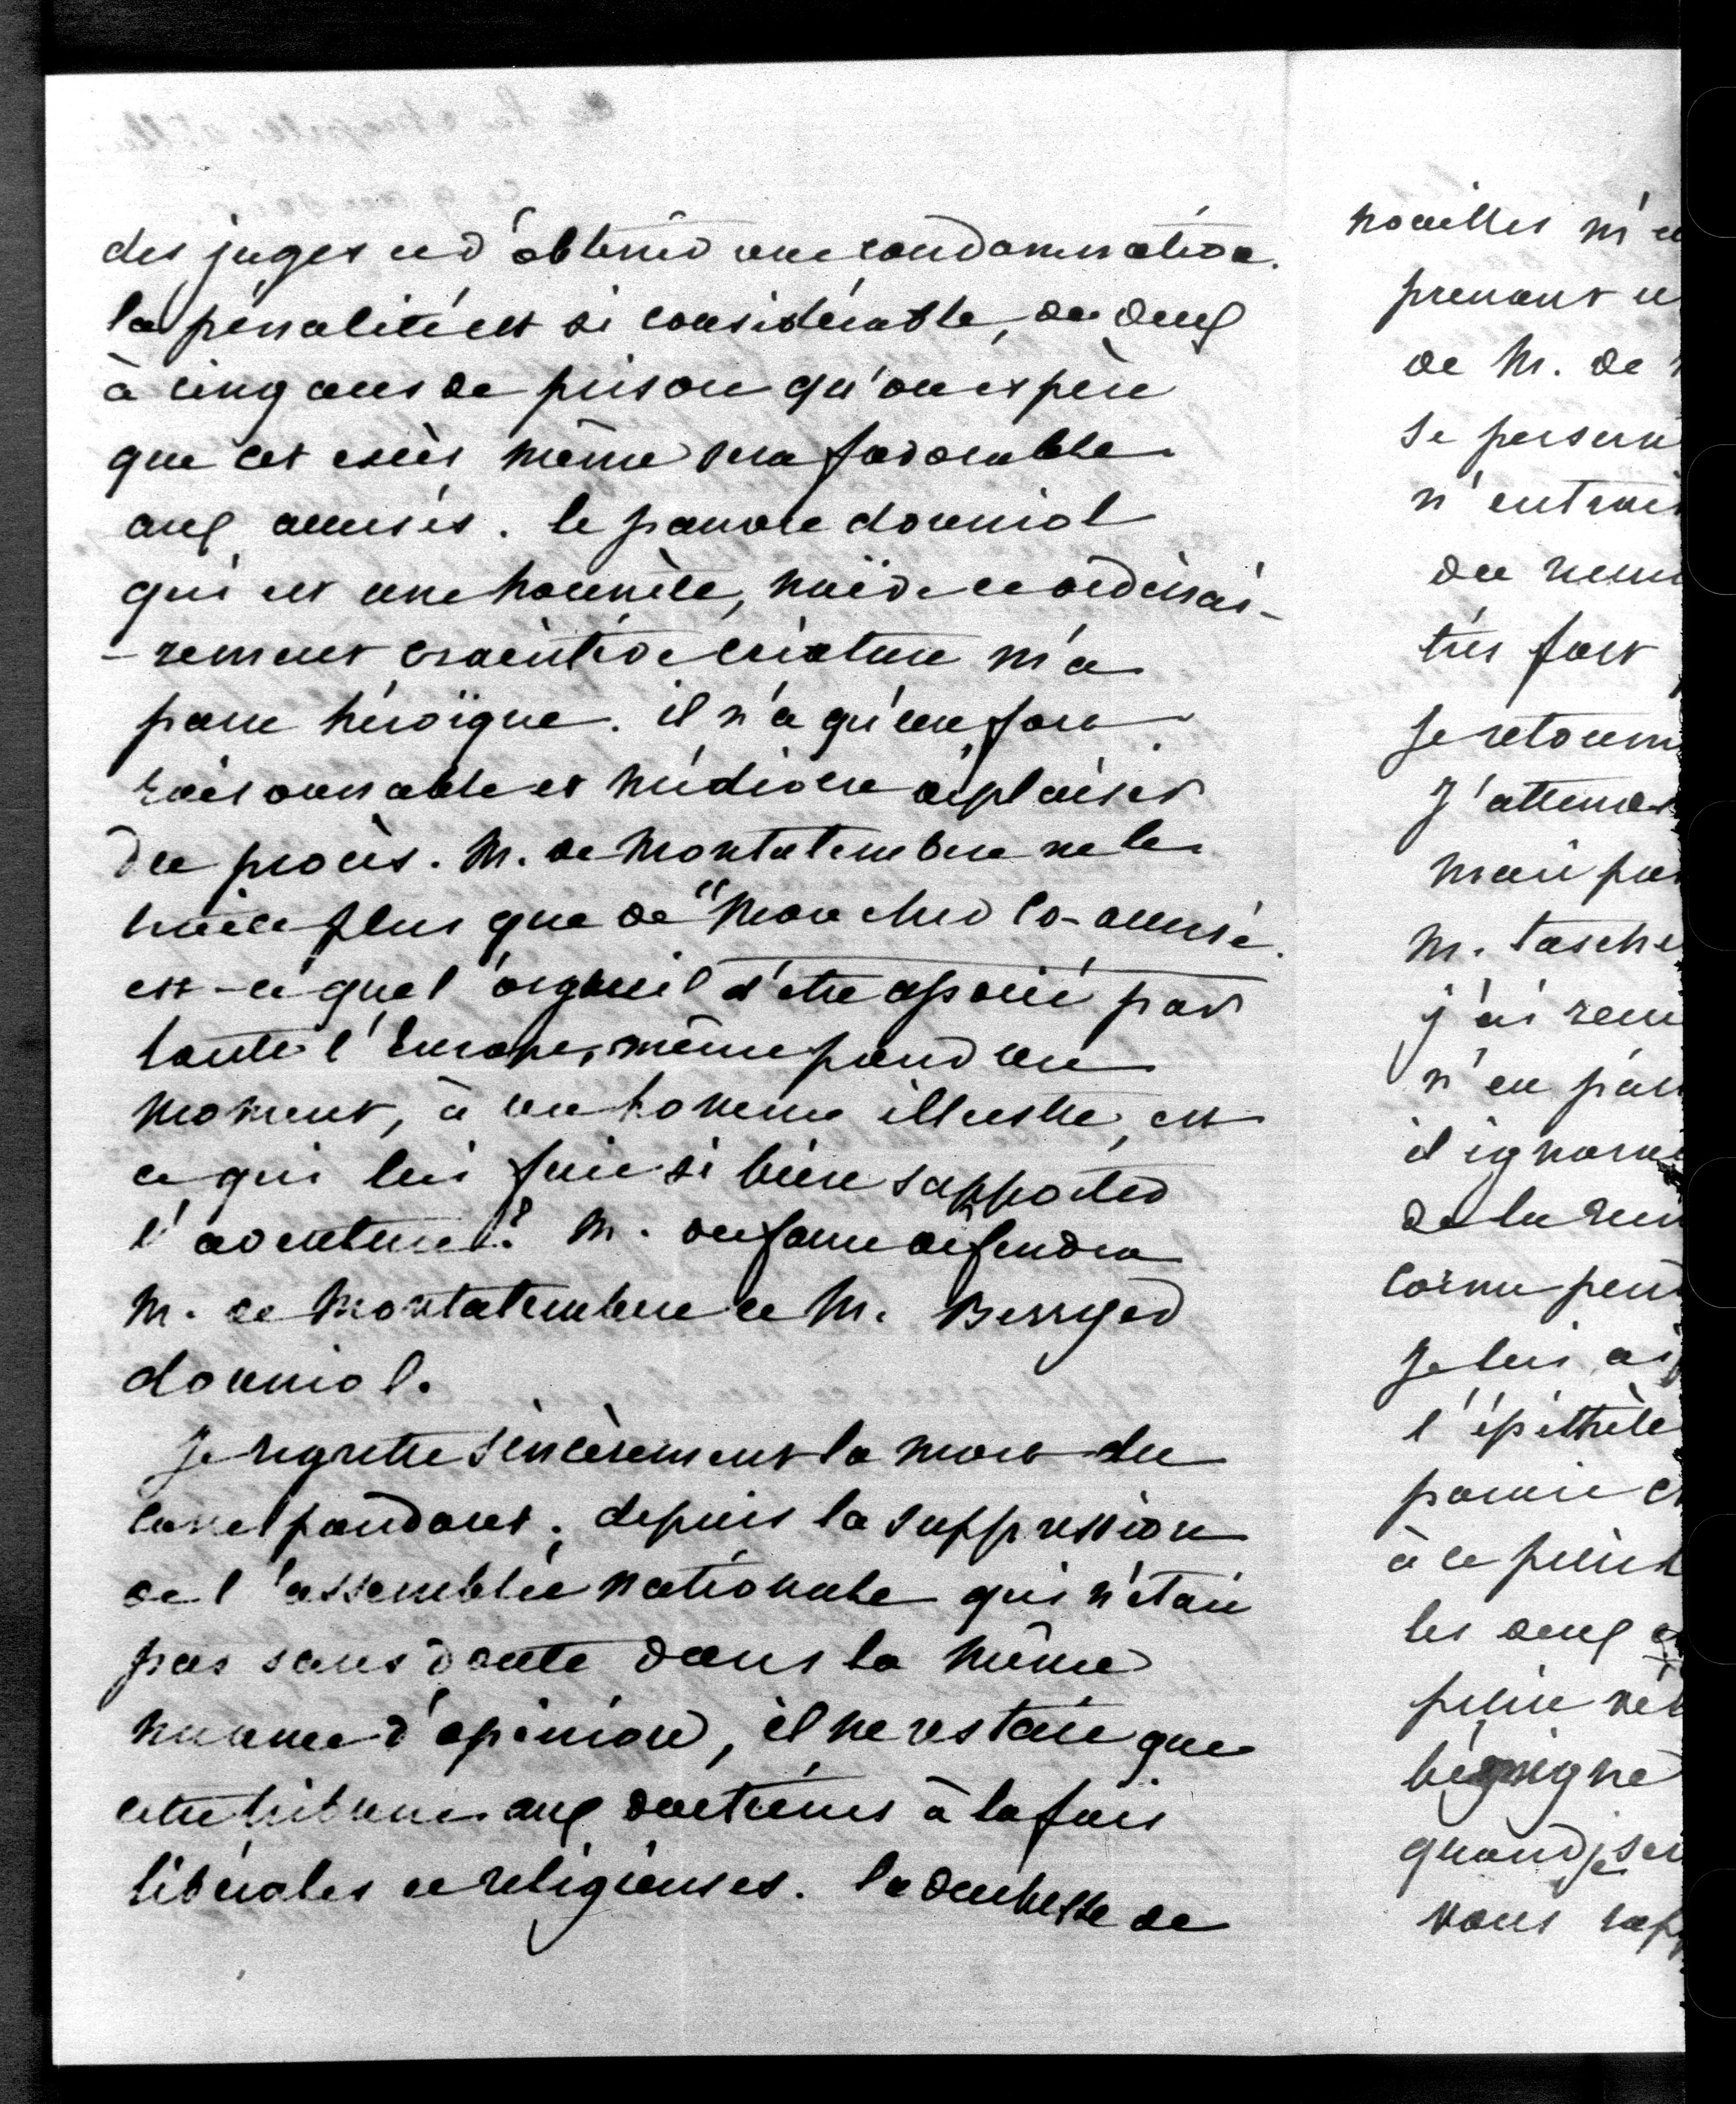 des juges et d'obtenir une condamnation.
la pénalité est si considérable, de deux
à cinq ans de prison qu'on espère
que cet excès même sera favorable
aux accusés. le pauvre douniol
qui est une honnête, naïve et ordinai-
-rement craintive créature m'a
paru héroïque. il n'a qu'un fort
raisonnable et médiocre déplaisir
du procès. M. de Montalembert ne le
traite plus que de "mon cher co-accusé.
est-ce que l'orgueil d'être associé par
toute l'Europe, même pour un
moment, à un homme illustre, est
ce qui lui fait si bien supporter
l'aventure? M. dufaure défendra
M. de Montalembert et M. Berryer
douniol.
Je regrette sincèrement la mort du
correspondant; depuis la suppression
de l'assemblée nationale qui n'était
pas sans doute dans la même
nuance d'opinion, il ne restait que
cette tribune aux doctrines à la fois
libérales et religieuses. la duchesse de
noailles m'e
prenant
de M. de
se persua
n'entrai
du
très fort
Je retourn
J'attend
mari pa
M. tasche
j'ai
n'en par
il ignorai
de la
peu
Je lui ai
l'épithète
à ce
les deux
quand je
vous